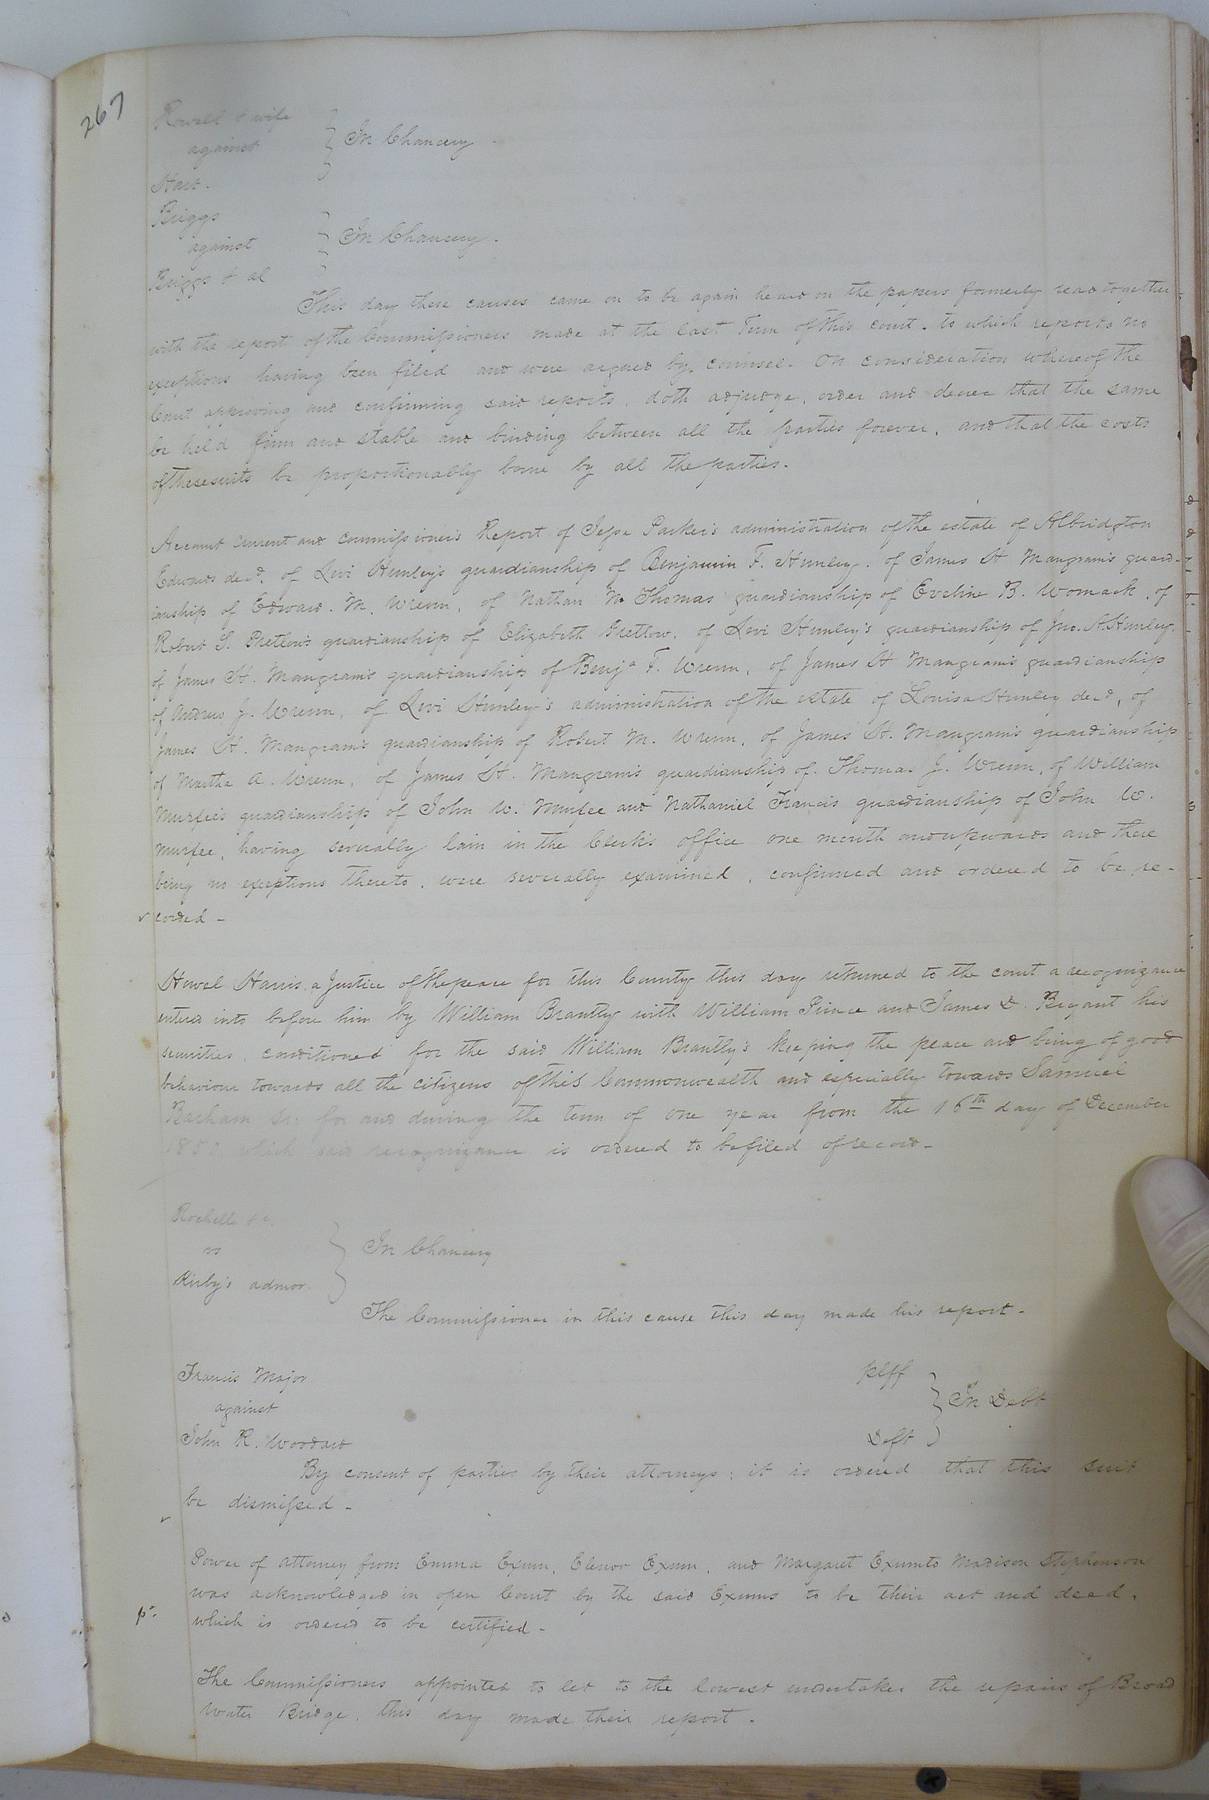 267
Rowell & wife
against } In Chancery
Hart.
Briggs
against } In Chancery.
Briggs & al
This day these causes came on to be again heard on the papers formerly read together
with the report of the Commissioners made at the last Term of this court. to which reports no
exceptions having been filed and were argued by counsel. On consideration whereof the
Court approving and confirming said reports, doth adjudge, order and decree that the same
be held firm and stable and binding between all the parties forever, and that the costs
of these suits be proportionably borne by all the parties.
Account current and commissioner's Report of Jesse Parker's administration of the estate of Albridgton
Edwards decd. of Levi Hunley's guardianship of Benjamin F. Hunley. of James H Mangram's guard-
ianship of Edward. M. Wrenn, of Nathan M Thomas guardianship of Eveline B. Womack, of
Robert S. Pretlow's guardianship of Elizabeth Pretlow, of Levi Hunley's guardianship of Jno. A. Hunley.
of James H. Mangram's guardianship of Benja F. Wrenn, of James H Mangram's guardianship
of Andrew J. Wrenn, of Levi Hunley's administration of the estate of Louisa Hunley decd, of
James H. Mangram's guardianship of Robert M. Wrenn, of James H. Mangram's guardianship
of Martha A. Wrenn, of James H. Mangram's guardianship of Thomas J. Wrenn, of William
Murfee's guardianship of John W. Murfee and Nathaniel Francis guardianship of John W.
Murfee, having severally lain in the Clerk's office one month and upwards and there
being no exceptions thereto, were severally examined, confirmed and ordered to be re-
corded -
Howel Harris a Justice of the peace for this County this day returned to the court a recognizance
entered into before him by William Brantly with William Prince and James D. Bryant his
securities, conditioned for the said William Brantly's keeping the peace and being of good
behaviour towards all the citizens of this Commonwealth and especially towards Samuel
Barham Sr. for and during the term of one year from the 16th day of December
1850, which said recognizance is ordered to be filed of record -
Rochelle &c.
vs } In Chancery
Kirby's admor.
The Commissioner in this cause this day made his report -
Francis Major plff
against } In Debt
John R. Woodard Deft
By consent of parties by their attorneys; it is ordered that this suit
be dismissed -
Power of attorney from Emma Exum, Elenor Exum, and Margaret Exum to Madison Stephenson
was acknowledged in open Court by the said Exums to be their act and deed,
which is ordered to be certified -
The Commissioners appointed to let to the lowest undertaker the repairs of Broad
Water Bridge, this day made their report.